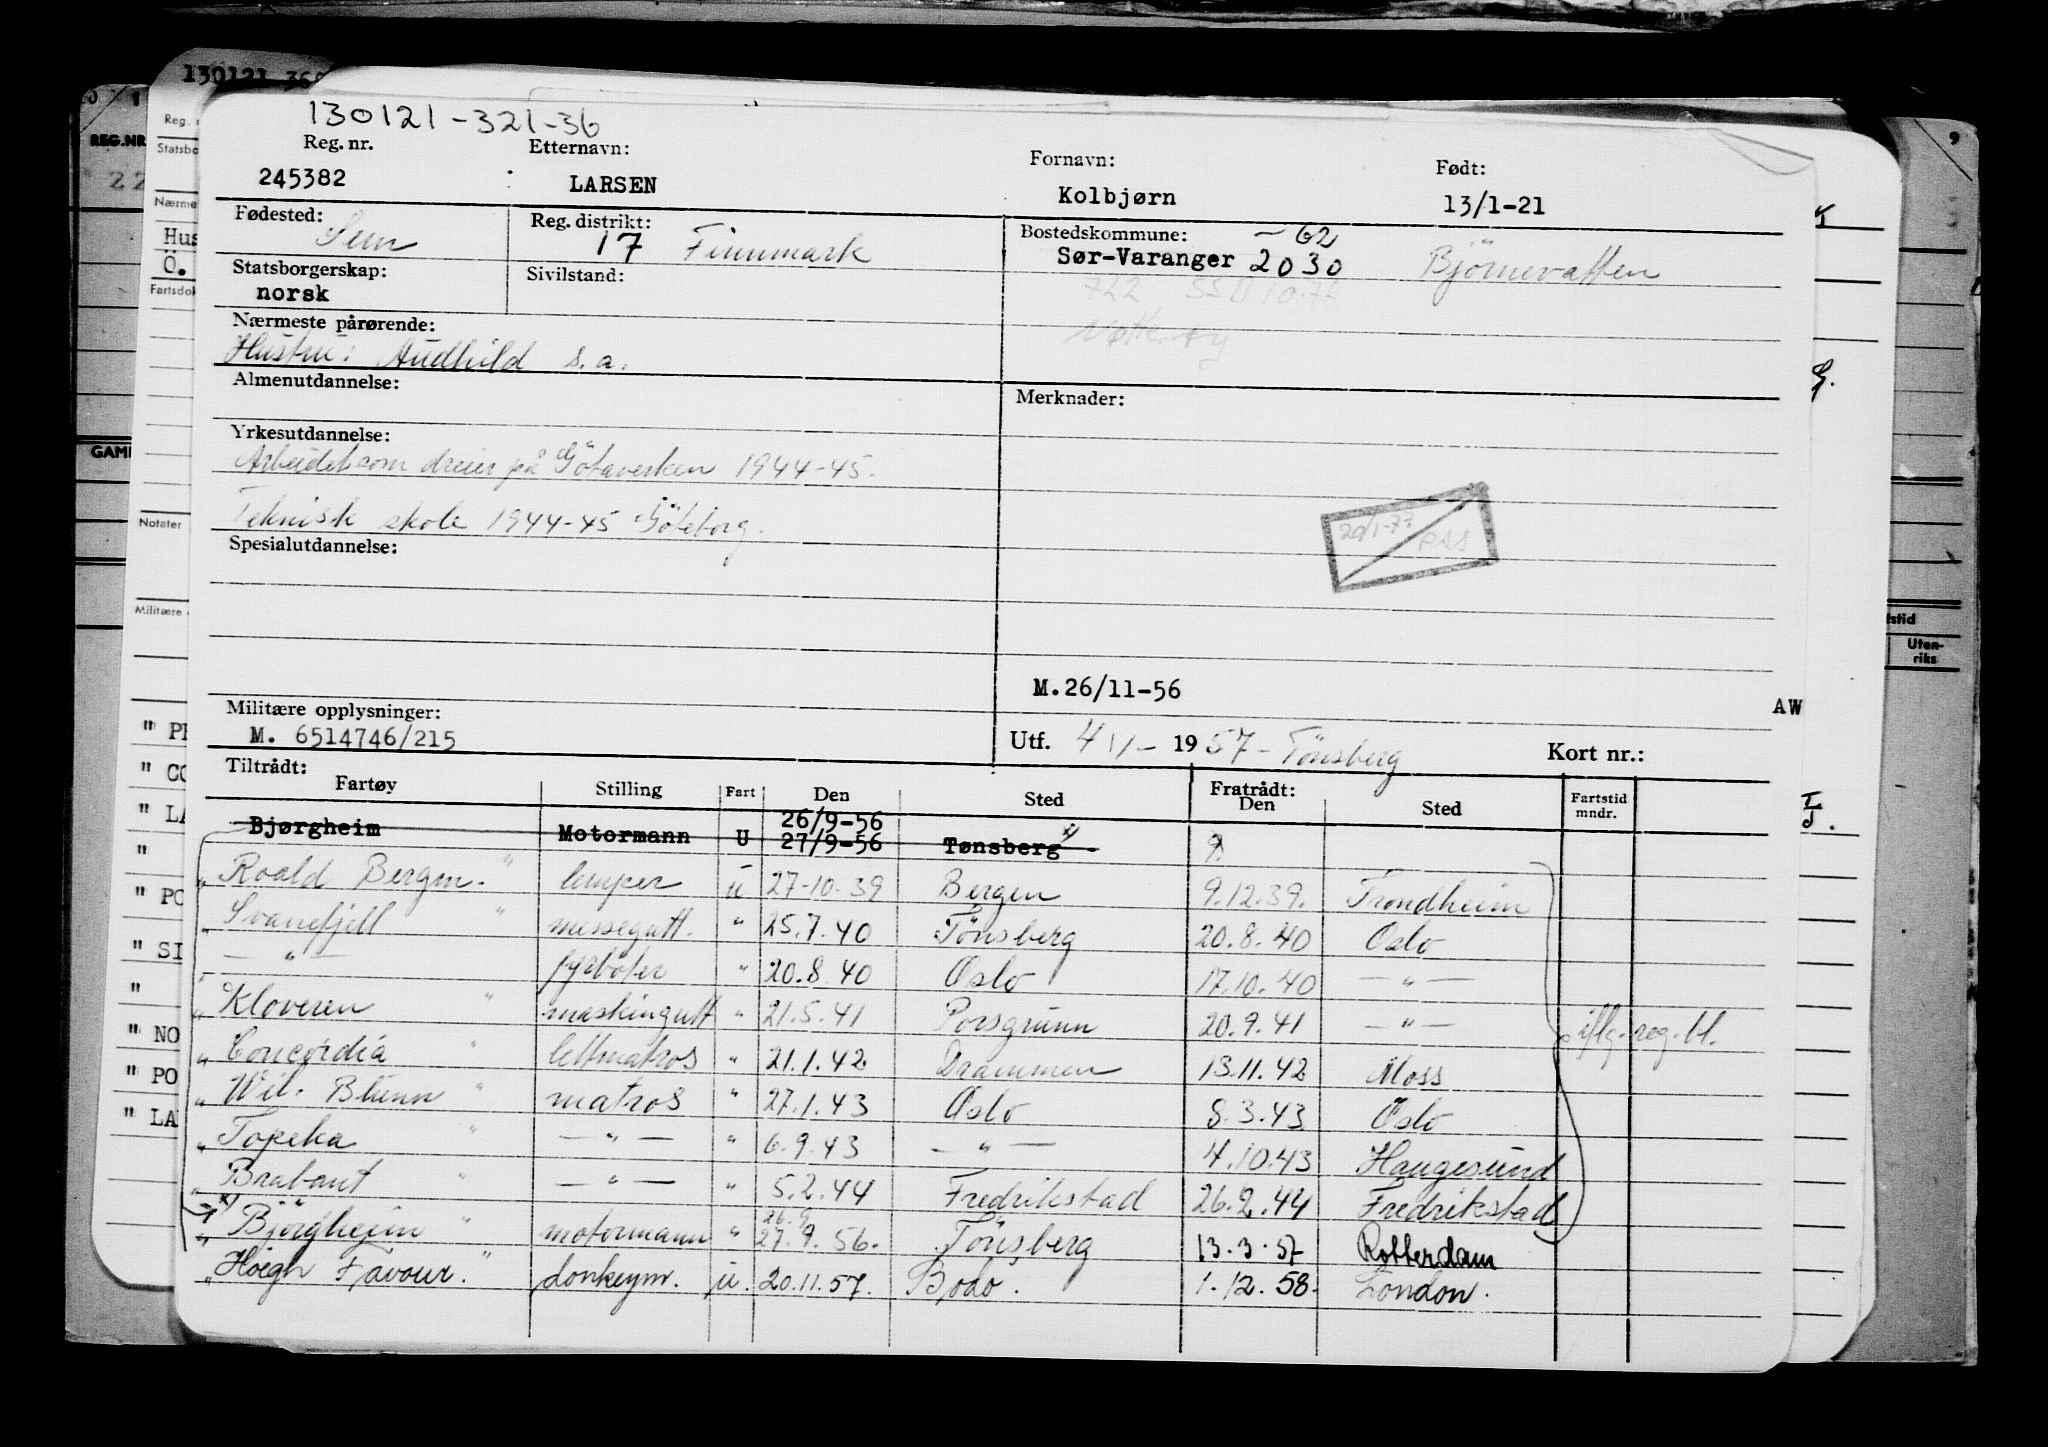 130121 36
130121-321-36
Reg. nr. Etternavn: Fornavn: Født:
245382 LARSEN Kolbjørn 13/1-21
Fødested: Reg. distrikt: Bostedskommune: -62
Sem 17 Finnmark Sør-Varanger 2030 Björnevatten
Statsborgerskap: Sivilstand:
norsk 722
Nærmeste pårørende:
Hustru: Audhild s.a.
Almenutdannelse: Merknader:
Yrkesutdannelse:
Arbeidet som dreier på Götaverken 1944-45.
Teknisk skole 1944-45 Göteborg.
20/1-77
Spesialutdannelse:
M.26/11-56
AW
Militære opplysninger:
M. 6514746/215
Utf. 4/1- 1957- Tönsberg Kort nr.:
Tiltrådt: Fratrådt:
Fartøy Stilling Fart Den Sted Den Sted Fartstid mndr.
Bjørgheim Motormann U 26/9-56 27/9-56 Tønsberg x/ - ?
" Roald Bergm. " lemper u 27-10.39 Bergen 9.12.39. Trondheim
" Svanefjell " messegutt. " 25.7.40 Tönsberg 20.8.40 Oslo
" — " — fyrböter " 20.8.40 Oslo 17.10.40 — " —
" Kloveren " maskingutt " 21.5.41 Porsgrunn 20.9.41 — " — iflg. reg. bl.
" Concordia " lettmatros " 21.1.42 Drammen 13.11.42 Moss
" Wil. Blumn " matros " 27.1.43 Oslo 8.3.43 Oslo
" Topeka " — " — " 6.9.43 — " — 4.10.43 Haugesund
" Brabant " — " — " 5.2.44 Fredrikstad 26.2.44 Fredrikstad
x/ " Björgheim " motormann " 26.9 27.9.56. Tönsberg 13.3.57 Rotterdam
" Höegh Favour. " donkeym. u. 20.11.57. Bodö. 1.12.58. London.
REG.NR
22
Reg. n
Statsbo
Nærme
Hus
Ö.
Fartsdok
GAM
Notater
Militære
" PE
" CO
" LA
"
" PO
" SI
"
" NO
" PO
" LA
9
stid
Uten-
riks